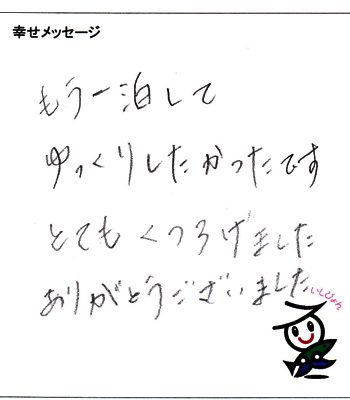 幸せメッセージ
もう一泊して
ゆっくりしたかったです
とてもくつろげました
ありがとうございました